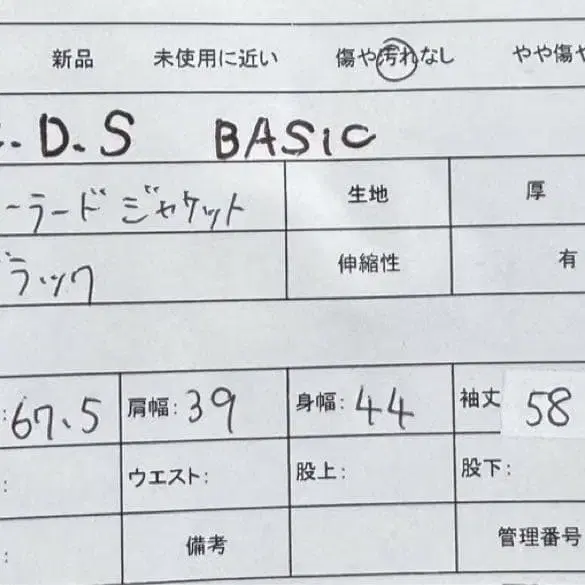 新品 未使用に近い 傷や汚れなし やや傷や
.D.S BASIC
ーラードジャケット 生地 厚
ブラック 伸縮性 有
:67.5 肩幅:39 身幅:44 袖丈 58
: ウエスト: 股上: 股下:
: 備考 管理番号